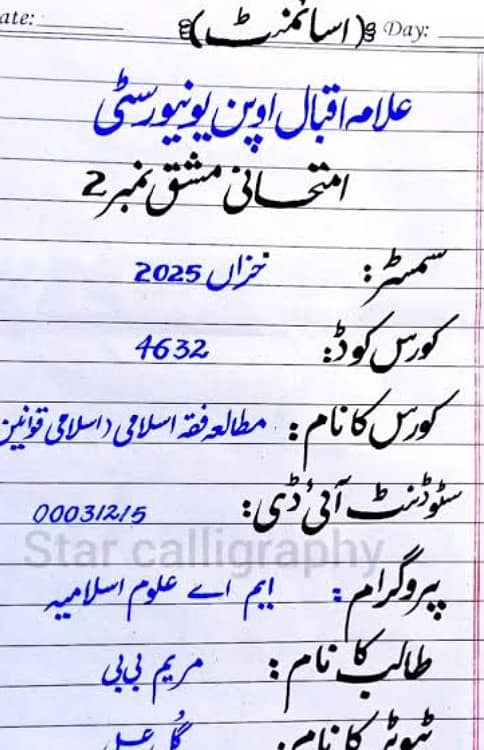 Date:
(اسائنمنٹ)
Day:
علامہ اقبال اوپن یونیورسٹی
امتحانی مشق نمبر 2
سمسٹر: خزاں 2025
کورس کوڈ: 4632
کورس کا نام: مطالعہ فقہ اسلامی (اسلامی قوانین
سٹوڈنٹ آئی ڈی: 00031215
Star calligraphy
پروگرام: ایم اے علوم اسلامیہ
طالب کا نام: مریم بی بی
ٹیوٹر کا نام: گل